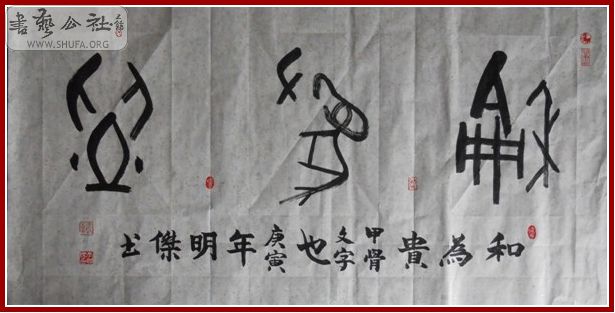 書藝公社
WWW.SHUFA.ORG
龢為貴
和為貴甲骨文字也庚寅年明傑书